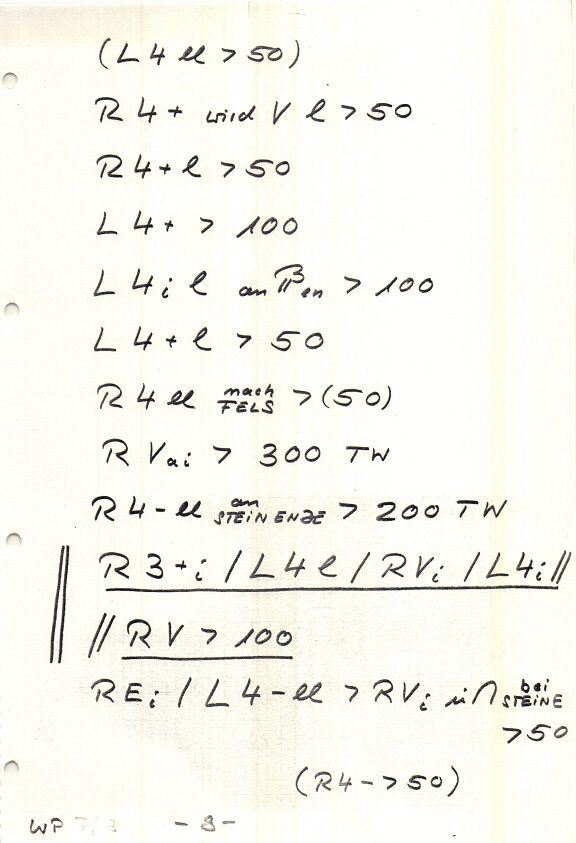 (L 4 ll > 50)
R 4+ wird V l > 50
R 4+ l > 50
L 4+ > 100
L 4i l an > 100
L 4+ l > 50
R 4 ll nach FELS > (50)
R Vai > 300 TW
R 4- ll an STEINENDE > 200 TW
R 3+i / L 4 l / R Vi / L 4i //
// R V > 100
R Ei / L 4- ll > R Vi in ∩ bei STEINE
> 50
(R 4- > 50)
WP 7/ - 8 -